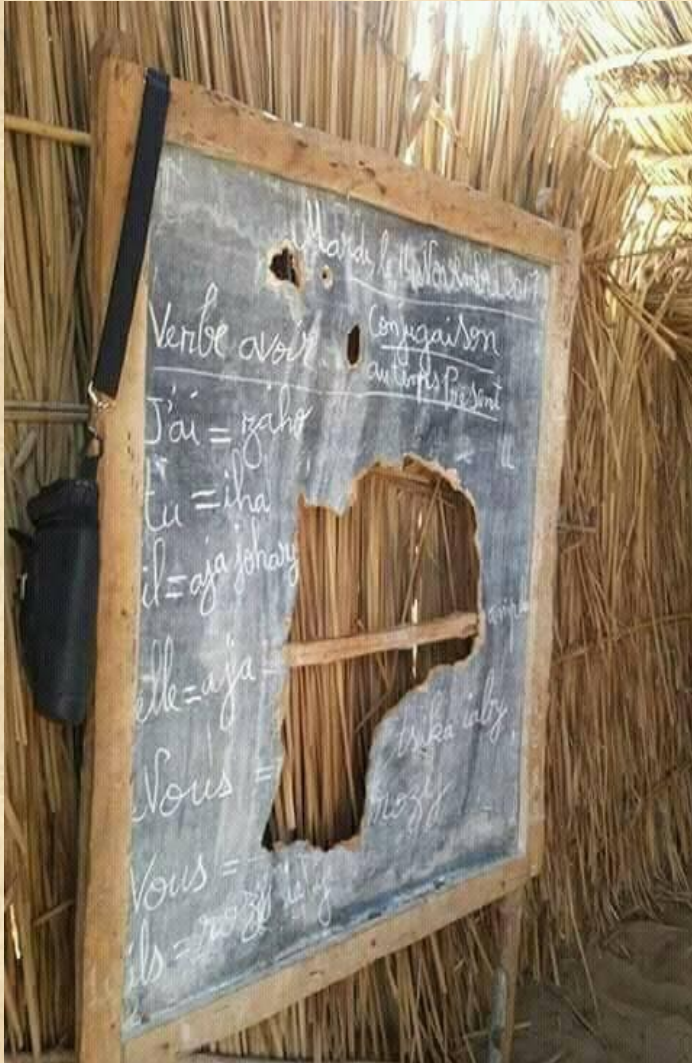 Mardi, le 14 Novembre 2017
Verbe avoir Conjugaison
au temps Présent
J'ai = zaho
tu = iha
il = aja johary
elle = aja
Nous = tsika iaby
Vous = rozy
ils = rozy